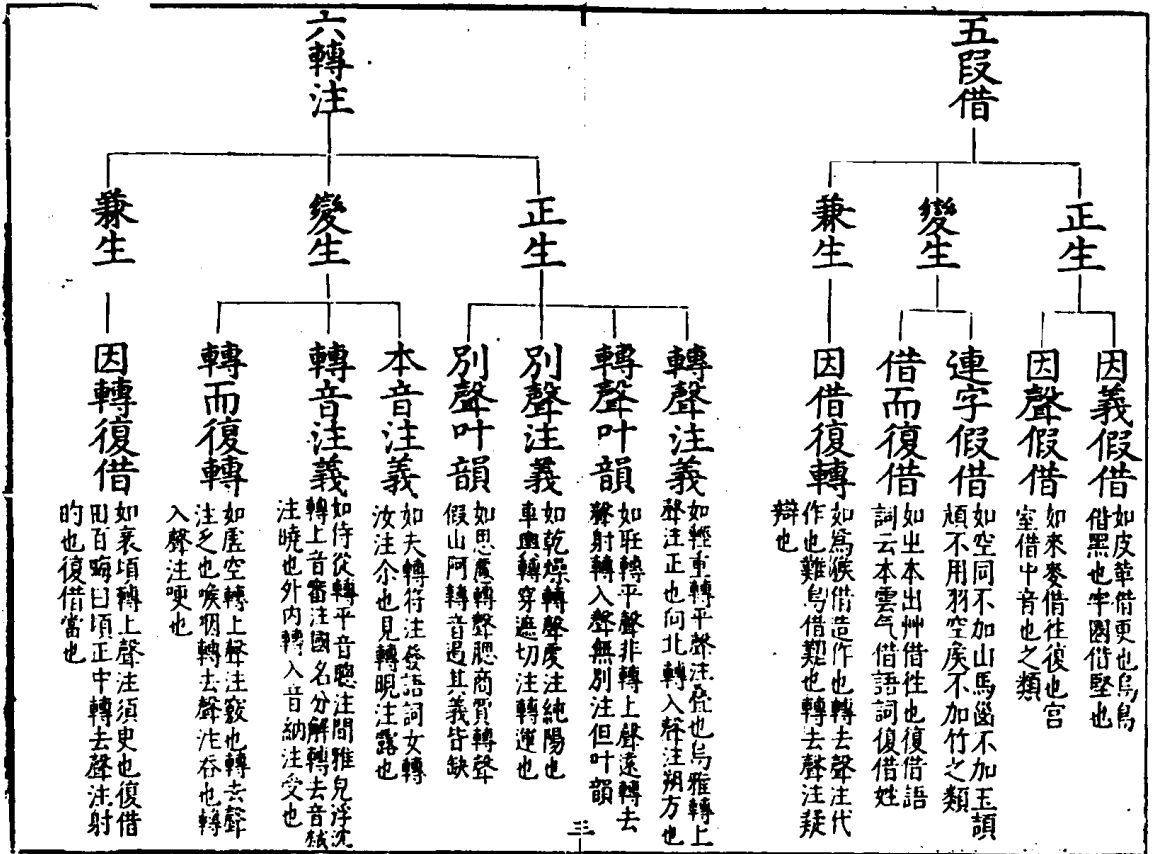 五叚借
正生
因義假借
如皮革借更也烏烏
借黑也牢固借堅也
因聲假借
如來麥借往復也宫
室借中音也之類
變生
連字假借
如空同不加山馬𦛁不加玉頡
頏不用羽空矦不加竹之類
借而復借
如㞢本出艸借徃也復借語
詞云本雲气借語詞復借姓
兼生
因借復轉
如爲猴借造作也轉去聲注代
作也難鳥借艱也轉去聲注疑
辯也
三
六轉注
正生
轉聲注義
如輕重轉平聲注疊也烏雅轉上
聲注正也向北轉入聲注朔方也
轉聲叶韻
如聃轉平聲非轉上聲遠轉去
聲射轉入聲無別注但叶韻
別聲注義
如乾燥轉聲虔注純陽也
車輿轉穿遮切注轉運也
別聲叶韻
如思慮轉聲腮商賈轉聲
假山阿轉音遏其義皆缺
變生
本音注義
如夫轉符注發語詞女轉
汝注尒也見轉現注露也
轉音注義
如侍從轉平音聦注閒雅皃浮沈
轉上音審注國名分解轉去音
注曉也外内轉入音納注受也
轉而復轉
如虚空轉上聲注竅也轉去聲
注乏也喉咽轉去聲注吞也轉
入聲注哽也
兼生
因轉復借
如衺頃轉上聲注須臾也復借
田百畮曰頃正中轉去聲注射
旳也復借當也